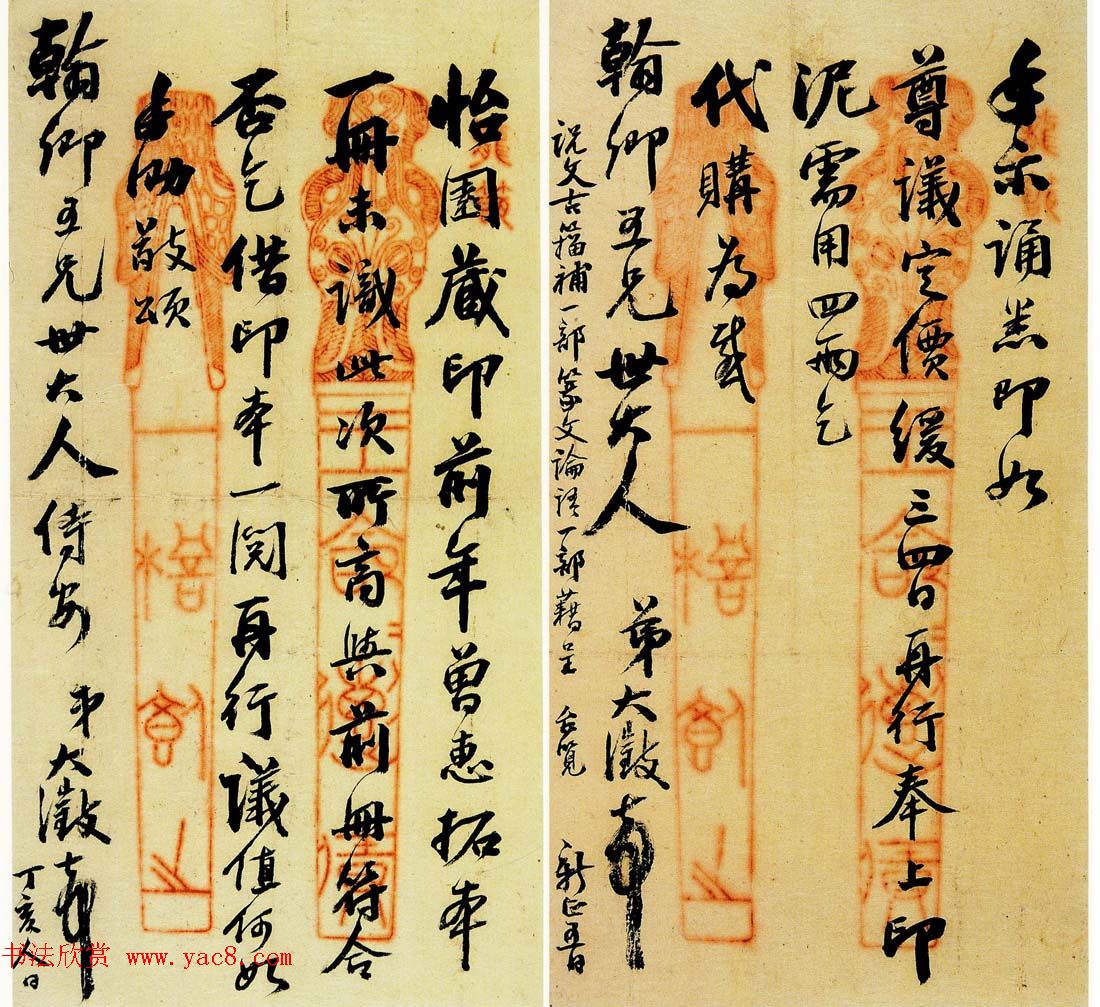 手示誦悉即如
尊議定價緩三四日再行奉上印
泥需用四兩乞
代購為感
翰卿五兄世大人 弟大澂頓首
說文古籀補一部篆文論語一部藉呈 台覽 新正五日
怡園藏印前年曾惠拓本
一冊未識此次所商與前冊符合
否乞借印本一閱再行議值何如
手泐敬頌
翰卿五兄世大人侍安 弟大澂頓首
丁亥人日
书法欣赏 www.yac8.com